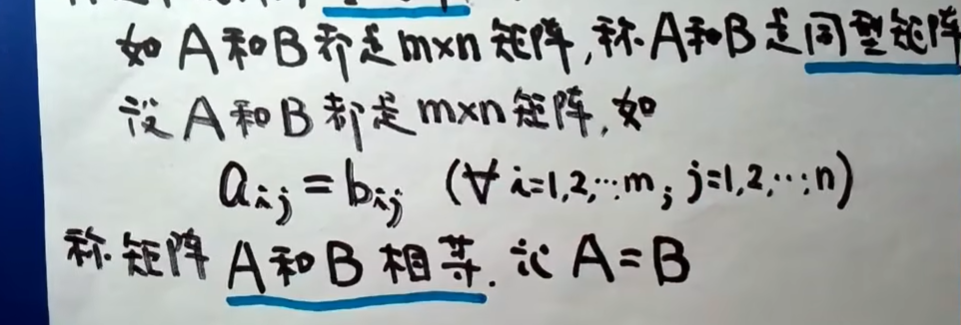 如 A和B都是m×n矩阵,称A和B是同型矩阵
设 A和B都是m×n矩阵,如
aij = bij (∀ i=1,2,…m; j=1,2,…,n)
称矩阵 A和B相等. 记 A=B